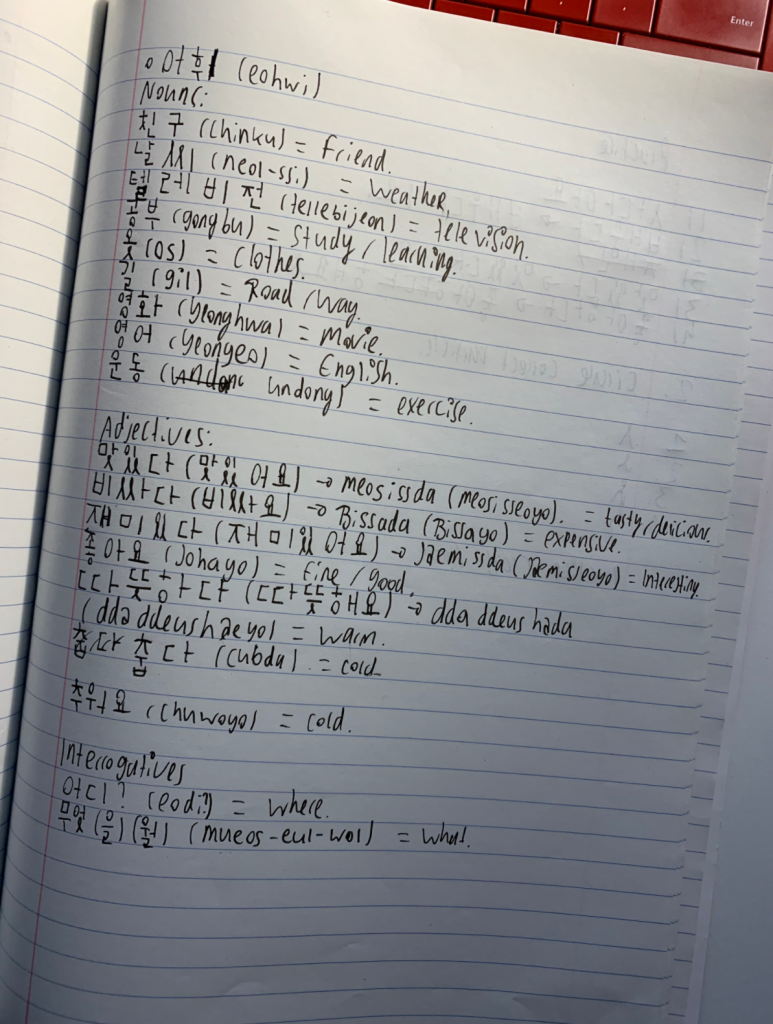 Enter
• 어휘 (eohwi)
Nouns:
친구 (chinku) = friend.
날씨 (neol-ssi) = weather.
텔레비전 (tellebijeon) = television.
공부 (gongbu) = Study / learning.
옷 (os) = clothes.
길 (gil) = Road / way.
영화 (yeonghwa) = Movie.
영어 (yeongeo) = English.
운동 (undong) = exercise.
Adjectives:
맛있다 (맛있어요) → meosissda (meosisseoyo). = tasty, delicious.
비싸다 (비싸요) → Bissada (Bissayo) = expensive.
재미있다 (재미있어요) → Jaemissda (Jaemisseoyo) = Interesting
좋아요 (Johayo) = fine / good.
따뜻하다 (따뜻해요) → dda ddeus hada
(dda ddeus haeyo) = warm.
춥다 (cubda) = cold
추워요 (chuwoyo) = cold.
Interrogatives
어디? (eodi?) = where.
무엇(을)(월) (mueos-eul-wol) = what.